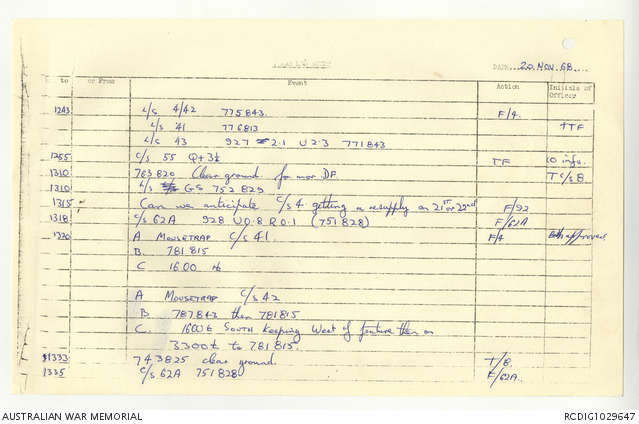 DATE 20 NOV 68
to or From Event Action Initials of Officer
1243 L/S 4/42 775843. F/4.
L/S 41 776813 TTF
L/S 43 927 2.1 U2.3 771843
1255 C/S 55 Q+3½ TF 10 info.
1310 763820 Clear ground for mor DF. T C/S 8.
1310 L/S GS 752829
1315 Can we anticipate C/S 4 getting a resupply on 21st or 22nd F/92
1318 C/S 62A 928 U0.8 R0.1 (751828) F/62A
1330 A MOUSETRAP C/S 41. F/4 approved
B. 781815
C 1600
A MOUSETRAP C/S 42
B 787843 then 781815
C. 1600t South keeping West of feature then on
3300t to 781815.
1333 743825 clear ground. T/8.
1335 C/S 62A 751828 F/62A.
AUSTRALIAN WAR MEMORIAL RCDIG1029647